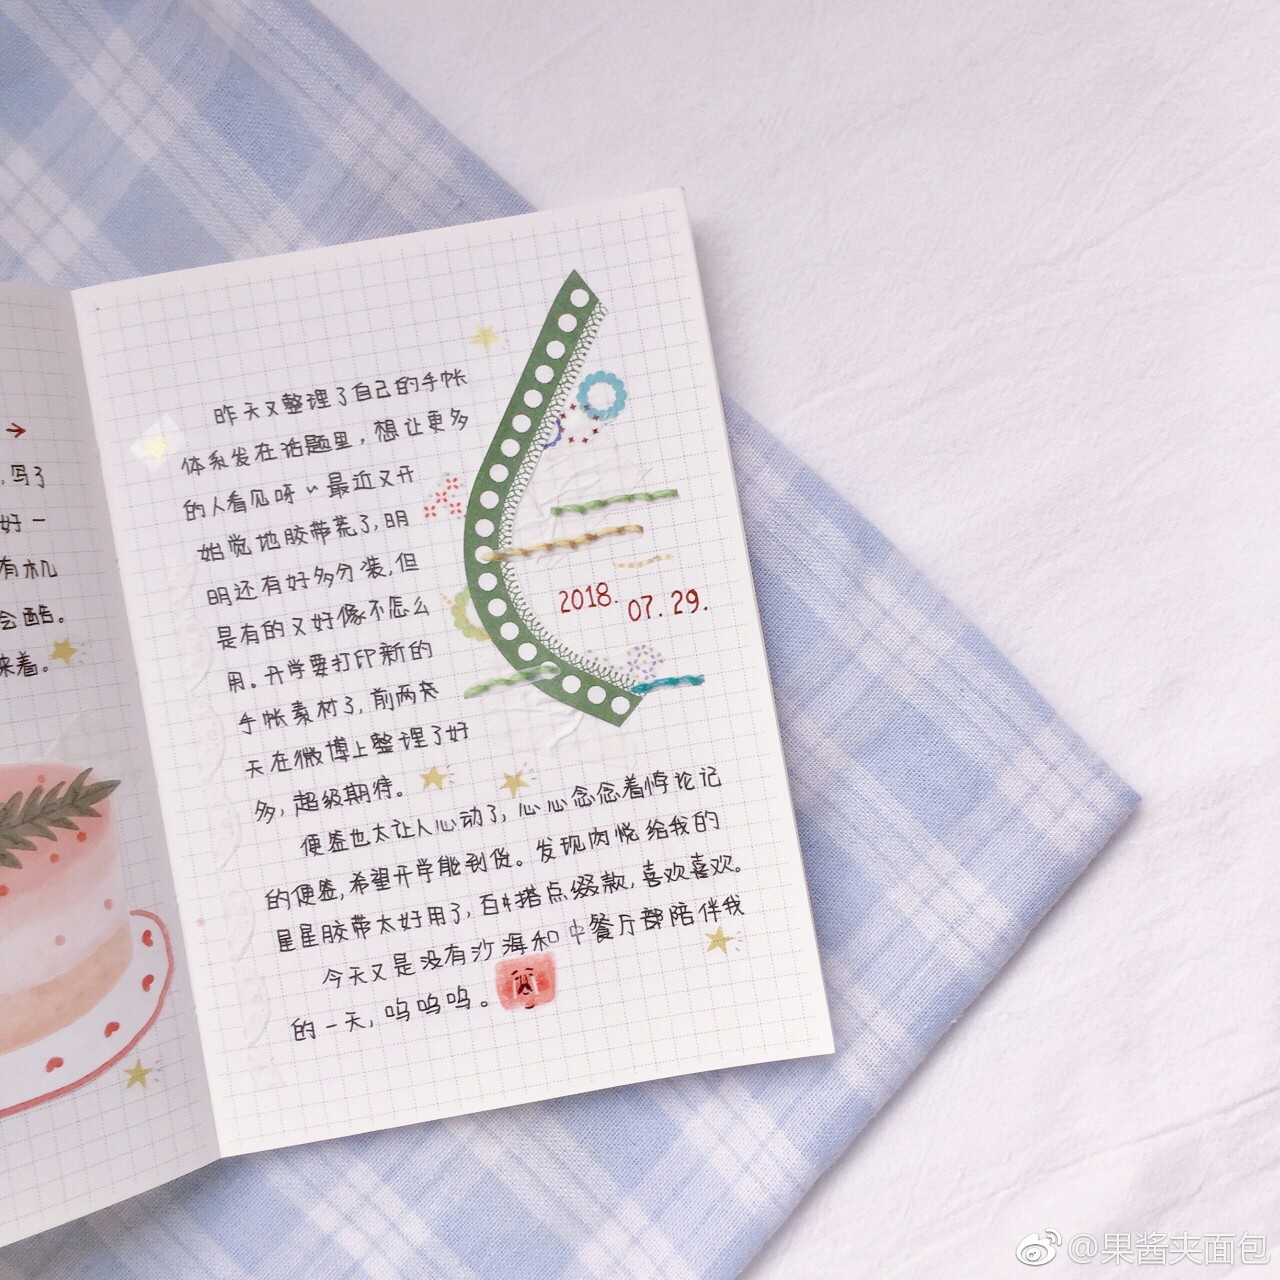 →
写了
好一
有机
会酷。
来着。
昨天又整理了自己的手帐
体系发在话题里，想让更多
的人看见呀~最近又开
始觉地胶带荒了,明
明还有好多分装,但
是有的又好像不怎么
用。开学要打印新的
手帐素材了,前两天
天在微博上整理了好
多,超级期待。
便签也太让人心动了,心心念念着悖论记
的便签,希望开学能到货。发现肉悦给我的
星星胶带太好用了,百搭点缀款,喜欢喜欢。
今天又是没有沙海和中餐厅部陪伴我
的一天,呜呜呜。
2018.
07.29.
@果酱夹面包